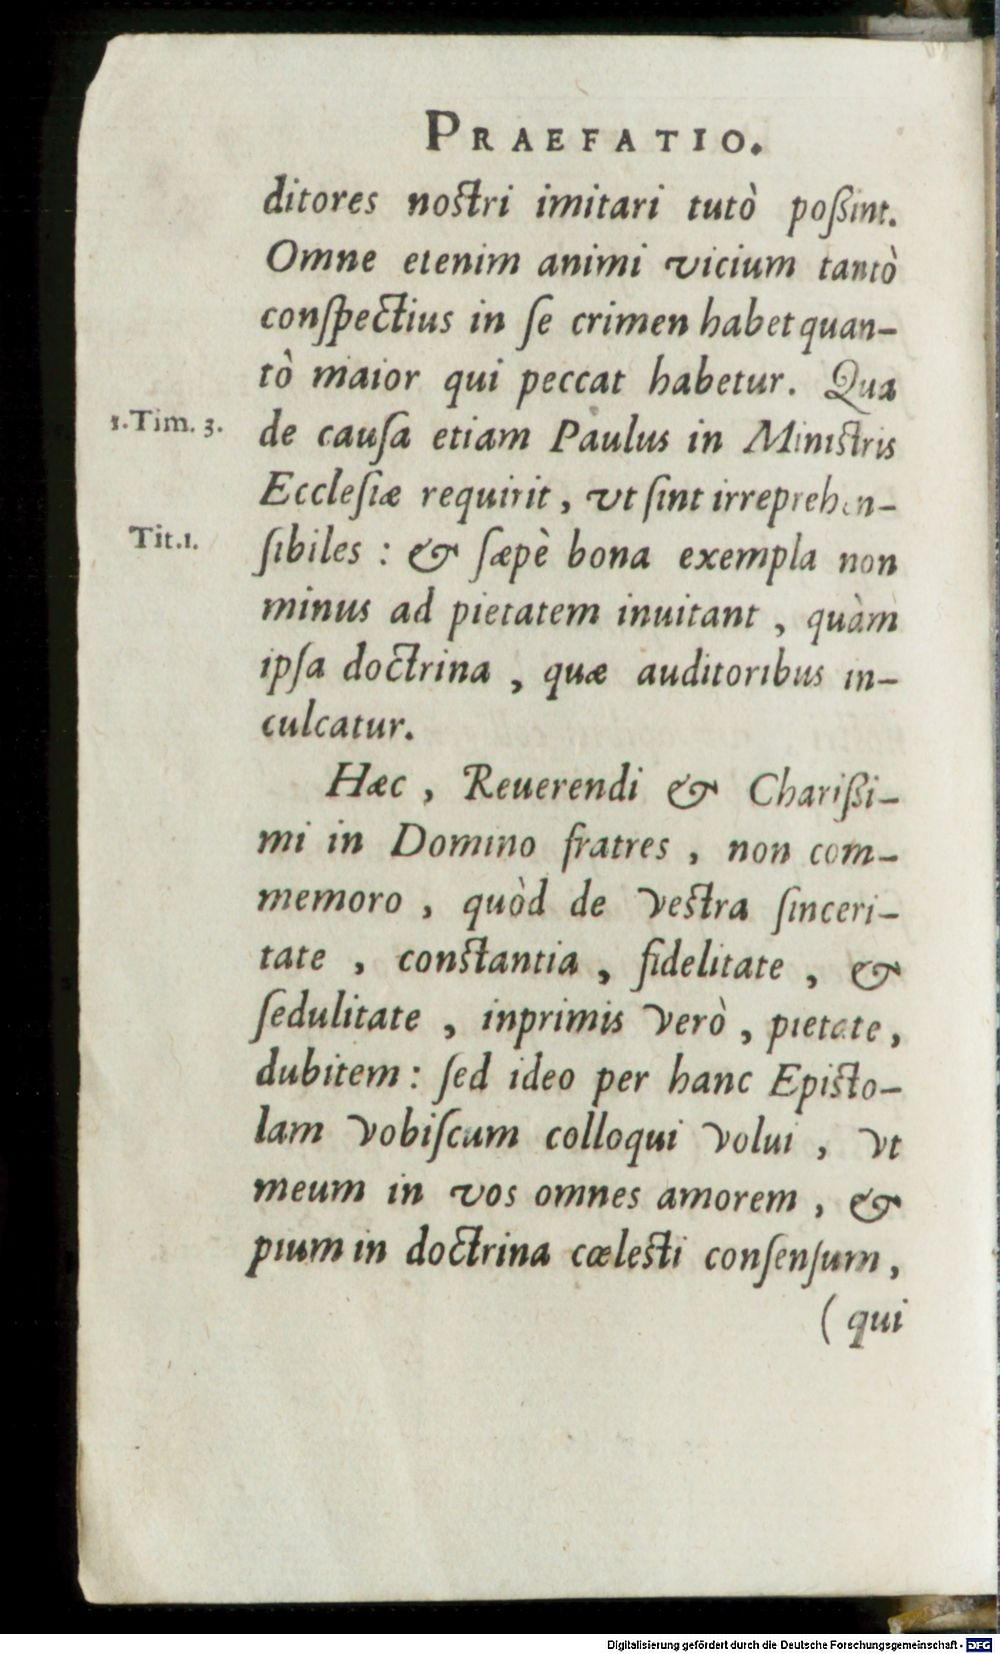 PRAEFATIO.
ditores nostri imitari tutò poßint.
Omne etenim animi vicium tantò
conſpectius in ſe crimen habet quan-
tò maior qui peccat habetur. Qua
1.Tim. 3.
de cauſa etiam Paulus in Ministris
Eccleſiæ requirit, vt ſint irreprehen-
Tit.1.
ſibiles : & ſæpè bona exempla non
minus ad pietatem inuitant, quàm
ipſa doctrina, quæ auditoribus in-
culcatur.
Hæc, Reuerendi & Charißi-
mi in Domino fratres, non com-
memoro, quòd de vestra ſinceri-
tate, constantia, fidelitate, &
ſedulitate, inprimis verò, pietate,
dubitem: ſed ideo per hanc Episto-
lam vobiſcum colloqui volui, vt
meum in vos omnes amorem, &
pium in doctrina cœlesti conſenſum,
(qui
Digitalisierung gefördert durch die Deutsche Forschungsgemeinschaft - DFG